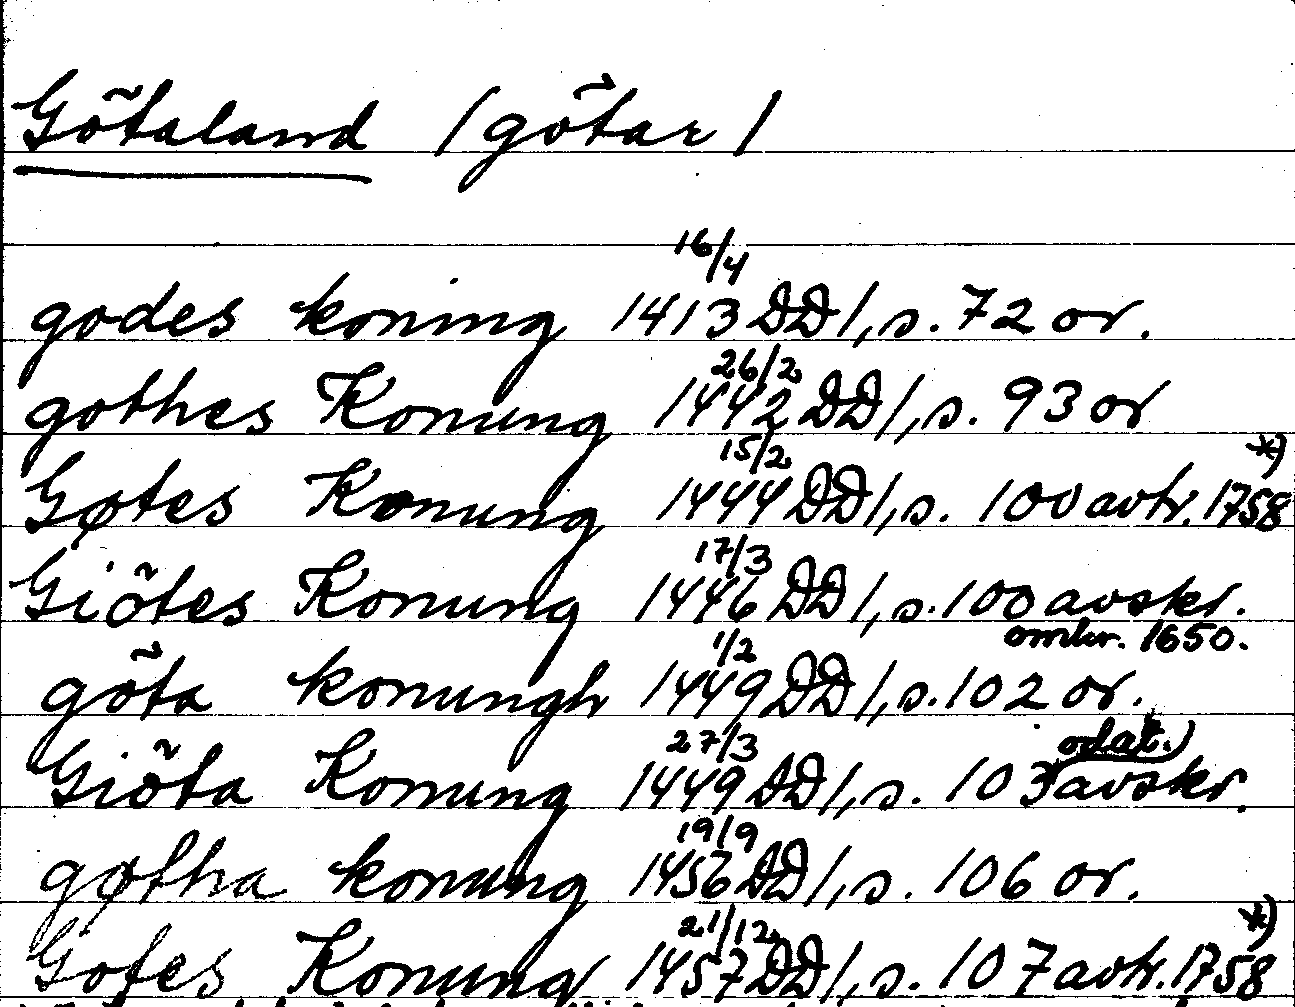 Götaland (götar)
godes koning 16/4 1413 DD1, s. 72 or.
gothes Konung 26/2 1442 DD1, s. 93 or
Gøtes Konung 15/2 1444 DD1, s. 100 avtr. 1758 *)
Giötes Konung 17/3 1446 DD1, s. 100 avskr. omkr. 1650.
göta konungh 1/2 1449 DD1, s. 102 or.
Giöta Konung 27/3 1449 DD1, s. 103 odat.) avskr.
gøtha konung 19/9 1456 DD1, s. 106 or.
Gotes Konung 21/12 1457 DD1, s. 107 avtr. 1758 *)